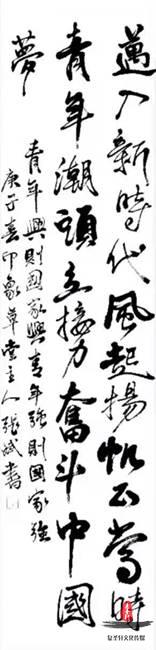 邁入新時代風起揚帆正當時
青年潮頭立接力奮斗中國
夢
青年興則國家興青年強則國家強
庚子春印象草堂主人張斌書
圣轩文化传媒